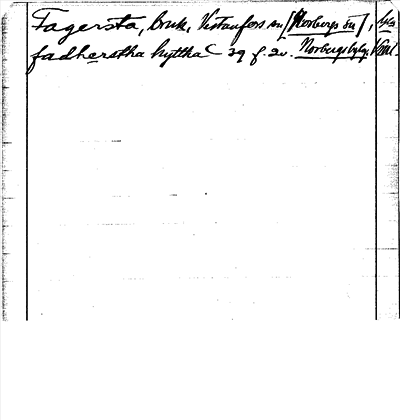 Fagersta, bruk, Västanfors sn [Norbergs sn],
fadherstha hyttha C 29 f. 20. Norbergsbylag. Vml.